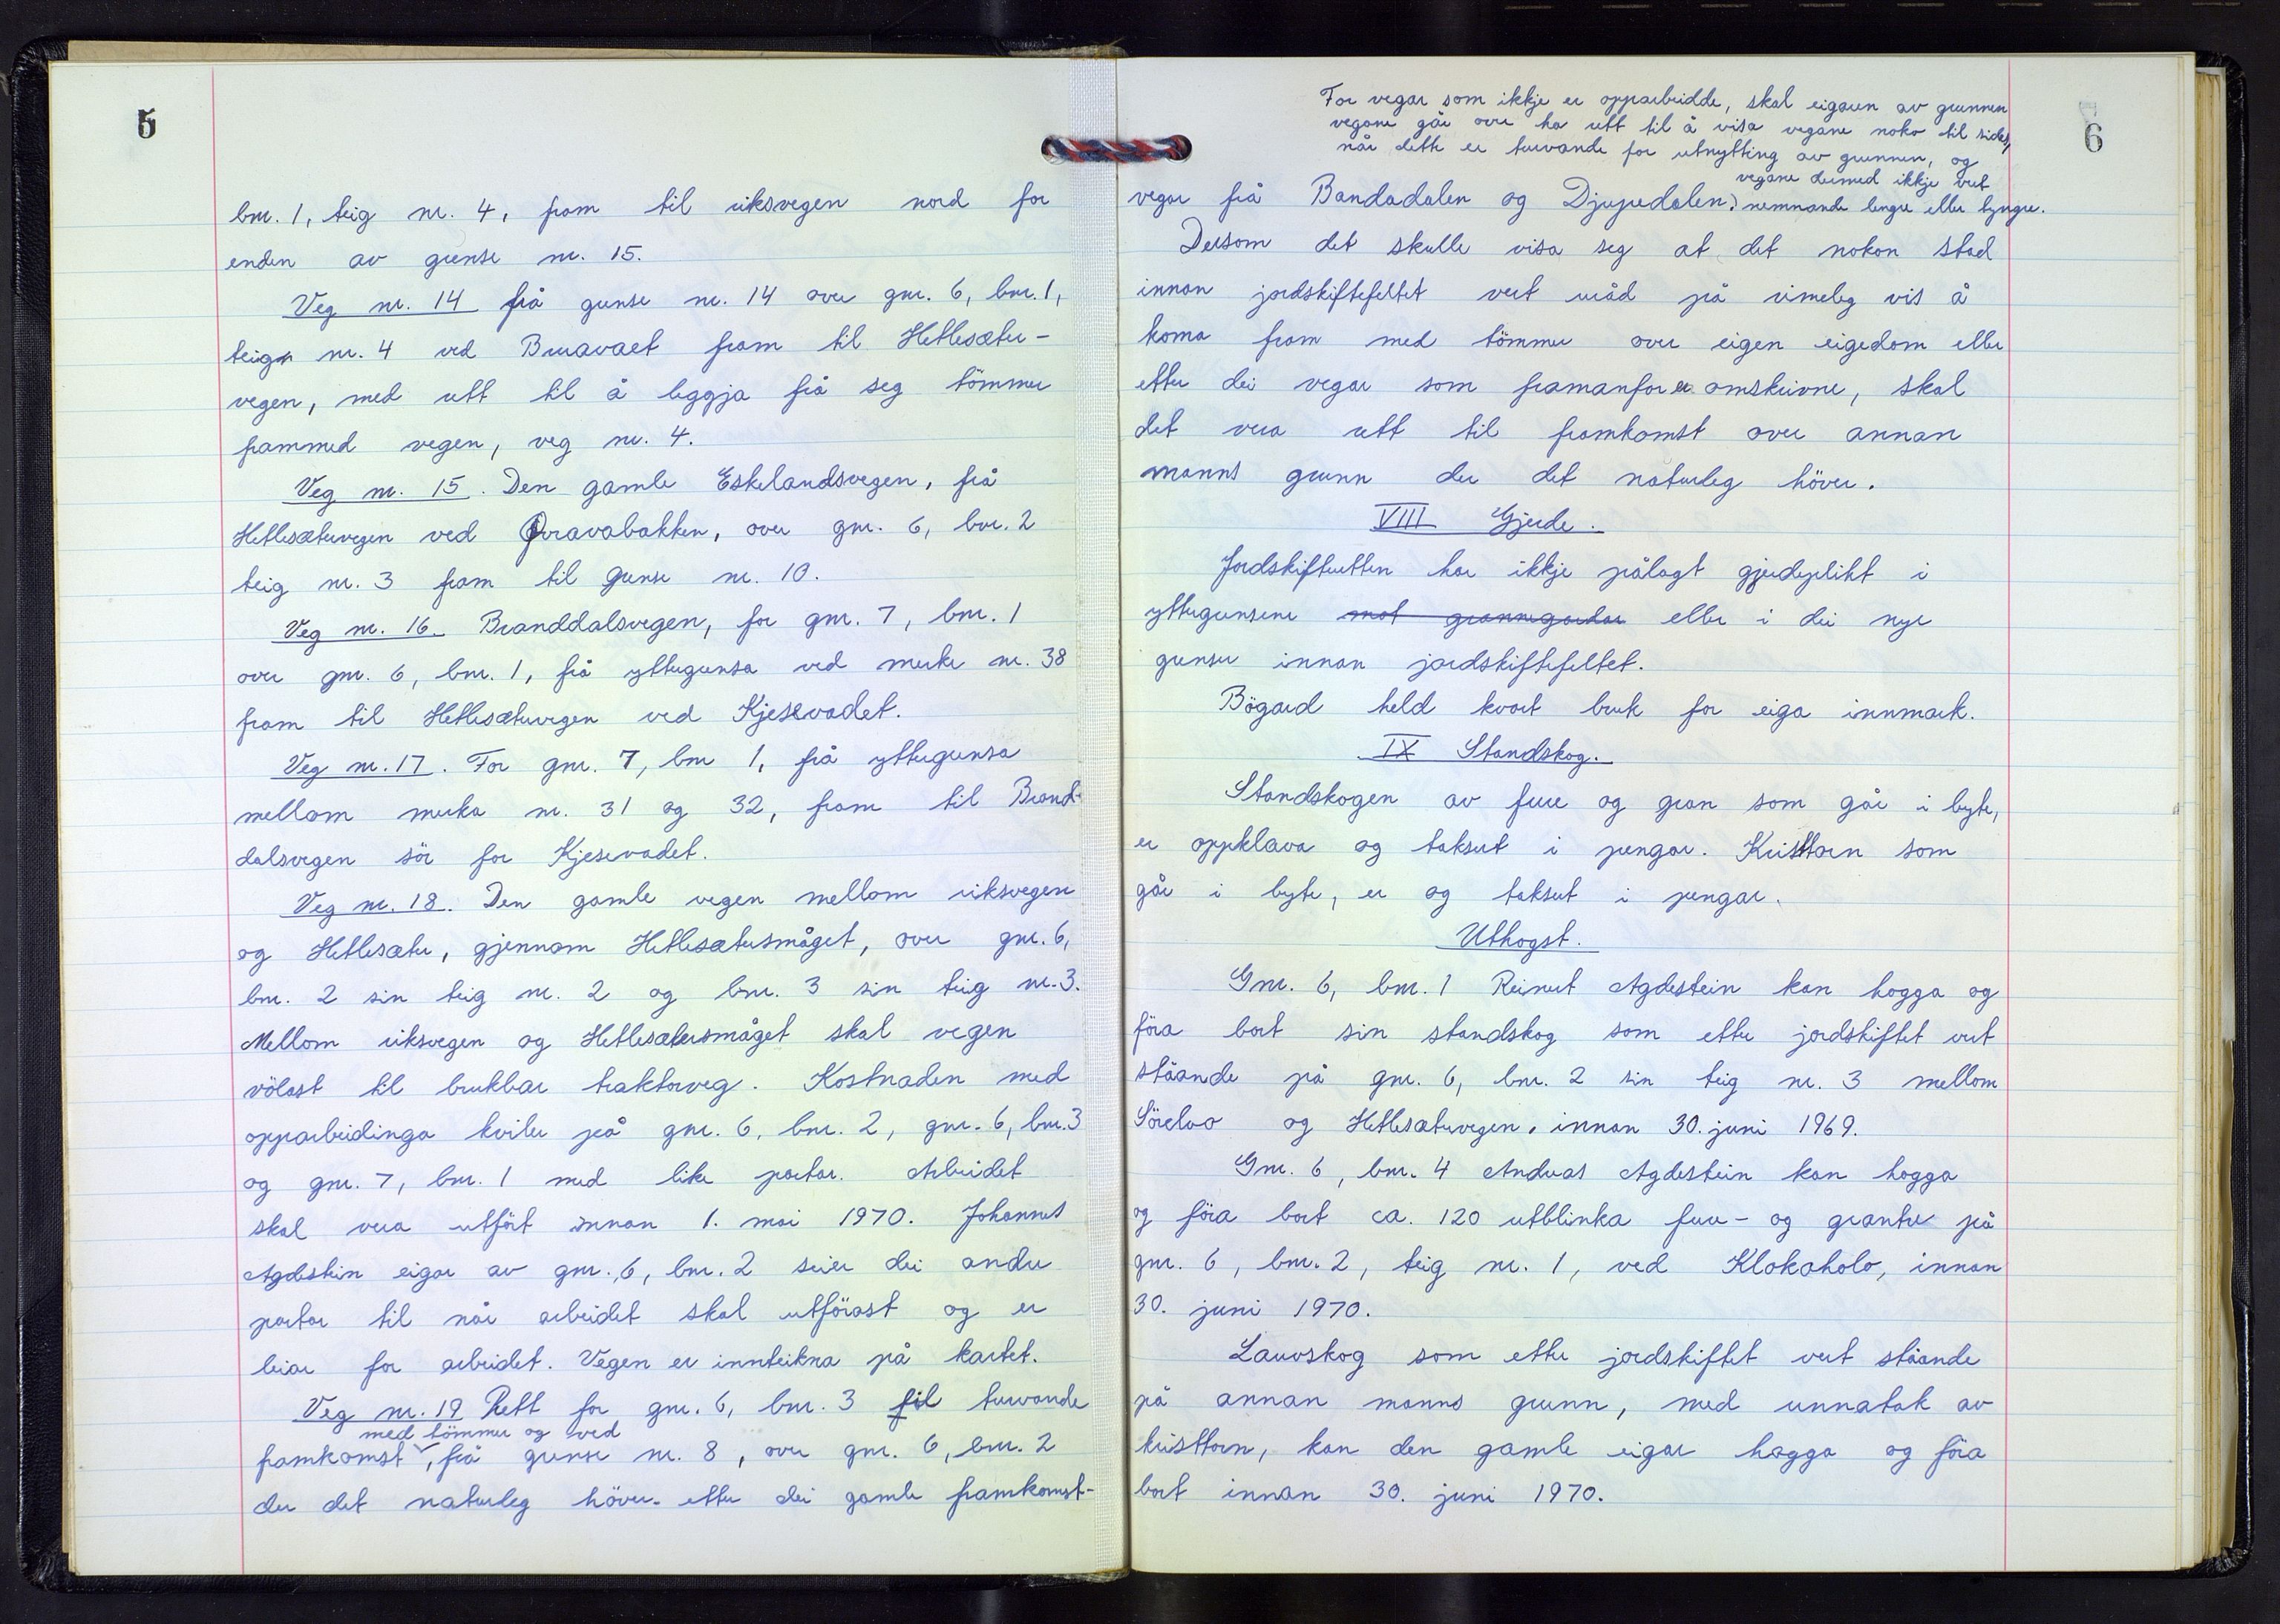 5
bnr. 1, teig nr. 4, fram til riksvegen nord for
enden av grense nr. 15.
Veg nr. 14 frå grense nr. 14 over gnr. 6, bnr. 1,
teig nr. 4 ved Bruavaet fram til Hetlesæter-
vegen, med rett til å leggja frå seg tömmer
frammed vegen, veg nr. 4.
Veg nr. 15. Den gamle Eskelandsvegen, frå
Hetlesætervegen ved Øvravabakken, over gnr. 6, bnr. 2
teig nr. 3 fram til grense nr. 10.
Veg nr. 16. Branddalsvegen, for gnr. 7, bnr. 1
over gnr. 6, bnr. 1, frå yttergrensa ved merke nr. 38
fram til Hetlesætervegen ved Kjesevadet.
Veg nr. 17. For gnr. 7, bnr 1, frå yttergrensa
mellom merka nr. 31 og 32, fram til Brand-
dalsvegen sör for Kjesevadet.
Veg nr. 18. Den gamle vegen mellom riksvegen
og Hetlesæter, gjennom Hetlesætersmåget, over gnr. 6,
bnr. 2 sin teig nr. 2 og bnr. 3 sin teig nr. 3.
Mellom riksvegen og Hetlesætersmåget skal vegen
völast til brukbar traktorveg. Kostnaden med
opparbeidinga kviler på gnr. 6, bnr. 2, gnr. 6, bnr. 3
og gnr. 7, bnr. 1 med like partar. Arbeidet
skal vera utfört innan 1. mai 1970. Johannes
Agdestein eigar av gnr. 6, bnr. 2 seier dei andre
partar til når arbeidet skal utförast og er
leiar for arbeidet. Vegen er innteikna på kartet.
Veg nr. 19 Rett for gnr. 6, bnr. 3 til turvande
med tömmer og ved
framkomst, frå grense nr. 8, over gnr. 6, bnr. 2
der det naturleg höver. etter dei gamle framkomst-
6
For vegar som ikkje er opparbeidde, skal eigaren av grunnen
vegane går over ha rett til å visa vegane noko til sides,
når dette er turvande for utnytting av grunnen, og
vegane dermed ikkje vert
vegar frå Bandadalen og Djupedalen. nemnande lengre eller tyngre.
Dersom det skulle visa seg at det nokon stad
innan jordskiftefeltet vert uråd på rimeleg vis å
koma fram med tömmer over eigen eigedom eller
etter dei vegar som framanfor er omskrivne, skal
det vera rett til framkomst over annan
manns grunn der det naturleg höver.
VIII Gjerde.
Jordskifteretten har ikkje pålagt gjerdeplikt i
yttergrensene mot grannegardar eller i dei nye
grenser innan jordskiftefeltet.
Bögard held kvart bruk for eiga innmark.
IX Standskog.
Standskogen av fure og gran som går i byte,
er oppklava og taksert i pengar. Kristtorn som
går i byte, er og taksert i pengar.
Uthogst.
Gnr. 6, bnr. 1 Reinert Agdestein kan hogga og
föra bort sin standskog som etter jordskiftet vert
ståande på gnr. 6, bnr. 2 sin teig nr. 3 mellom
Sörelva og Hetlesætervegen, innan 30. juni 1969.
Gnr. 6, bnr. 4 Andreas Agdestein kan hogga
og föra bort ca. 120 utblinka fure- og grantre på
gnr. 6, bnr. 2, teig nr. 1, ved Klokaholo, innan
30. juni 1970.
Lauvskog som etter jordskiftet vert ståande
på annan manns grunn, med unnatak av
kristtorn, kan den gamle eigar hogga og föra
bort innan 30. juni 1970.